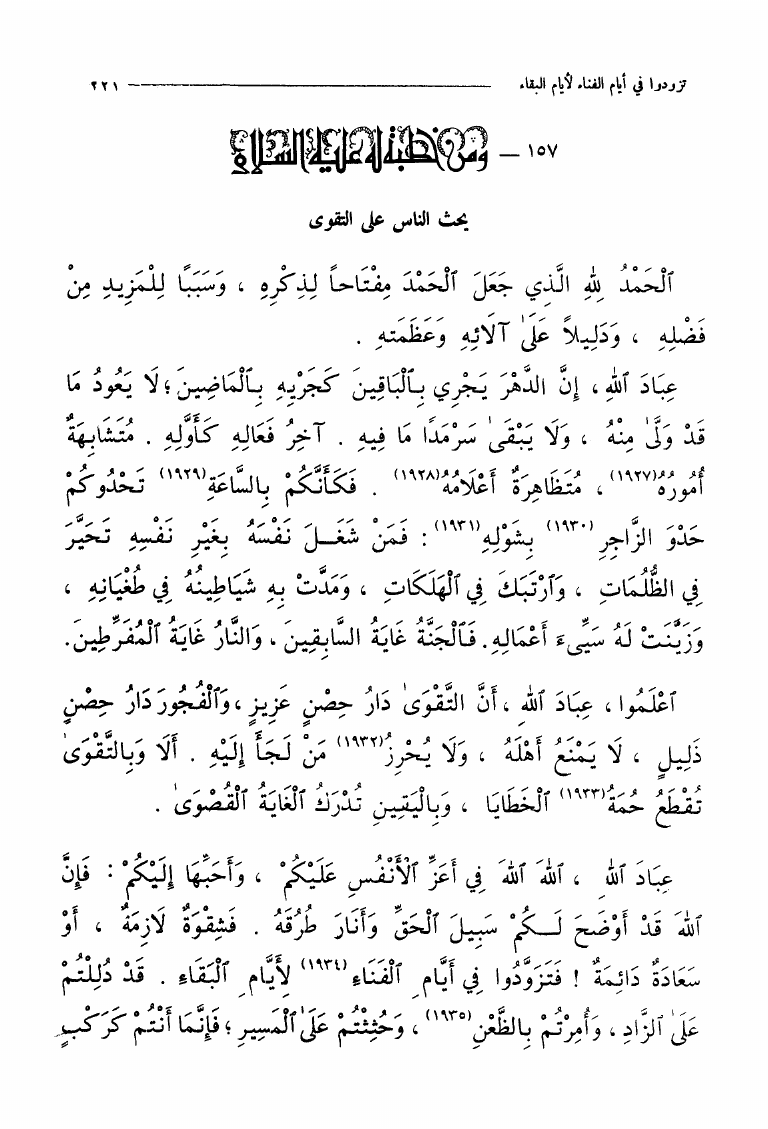 تزودوا في أيام الفناء لأيام البقاء ٢٢١
١٥٧ – ومن خطبة له عليه السلام
يحث الناس على التقوى
ٱلْحَمْدُ لِلّٰهِ الَّذِي جَعَلَ ٱلْحَمْدَ مِفْتَاحاً لِذِكْرِهِ ، وَسَبَبًا لِلْمَزِيدِ مِنْ
فَضْلِهِ ، وَدَلِيلاً عَلَىٰ آلَائِهِ وَعَظَمَتِهِ .
عِبَادَ ٱللهِ ، إِنَّ الدَّهْرَ يَجْرِي بِٱلْبَاقِينَ كَجَرْيِهِ بِٱلْمَاضِينَ ؛ لَا يَعُودُ مَا
قَدْ وَلَّىٰ مِنْهُ ، وَلَا يَبْقَىٰ سَرْمَدًا مَا فِيهِ . آخِرُ فَعَالِهِ كَأَوَّلِهِ . مُتَشَابِهَةٌ
أُمُورُهُ(١٩٢٧) ، مُتَظَاهِرَةٌ أَعْلَامُهُ(١٩٢٨) . فَكَأَنَّكُمْ بِالسَّاعَةِ(١٩٢٩) تَحْدُوكُمْ
حَدْوَ الزَّاجِرِ(١٩٣٠) بِشَوْلِهِ(١٩٣١) : فَمَنْ شَغَلَ نَفْسَهُ بِغَيْرِ نَفْسِهِ تَحَيَّرَ
فِي الظُّلُمَاتِ ، وَٱرْتَبَكَ فِي ٱلْهَلَكَاتِ ، وَمَدَّتْ بِهِ شَيَاطِينُهُ فِي طُغْيَانِهِ ،
وَزَيَّنَتْ لَهُ سَيِّىءَ أَعْمَالِهِ . فَٱلْجَنَّةُ غَايَةُ السَّابِقِينَ ، وَالنَّارُ غَايَةُ ٱلْمُفَرِّطِينَ.
ٱعْلَمُوا ، عِبَادَ ٱللهِ ، أَنَّ التَّقْوَىٰ دَارُ حِصْنٍ عَزِيزٍ ، وَٱلْفُجُورَ دَارُ حِصْنٍ
ذَلِيلٍ ، لَا يَمْنَعُ أَهْلَهُ ، وَلَا يُحْرِزُ(١٩٣٢) مَنْ لَجَأَ إِلَيْهِ . أَلَا وَبِالتَّقْوَىٰ
تُقْطَعُ حُمَةُ(١٩٣٣) ٱلْخَطَايَا ، وَبِالْيَقِينِ تُدْرَكُ ٱلْغَايَةُ ٱلْقُصْوَىٰ .
عِبَادَ ٱللهِ ، ٱللهَ ٱللهَ فِي أَعَزِّ ٱلْأَنْفُسِ عَلَيْكُمْ ، وَأَحَبِّهَا إِلَيْكُمْ : فَإِنَّ
ٱللهَ قَدْ أَوْضَحَ لَكُمْ سَبِيلَ ٱلْحَقِّ وَأَنَارَ طُرُقَهُ . فَشِقْوَةٌ لَازِمَةٌ ، أَوْ
سَعَادَةٌ دَائِمَةٌ ! فَتَزَوَّدُوا فِي أَيَّامِ ٱلْفَنَاءِ(١٩٣٤) لِأَيَّامِ ٱلْبَقَاءِ . قَدْ دُلِلْتُمْ
عَلَىٰ ٱلزَّادِ ، وَأُمِرْتُمْ بِالظَّعْنِ(١٩٣٥) ، وَحُثِثْتُمْ عَلَىٰ ٱلْمَسِيرِ ؛ فَإِنَّمَا أَنْتُمْ كَرَكْبٍ